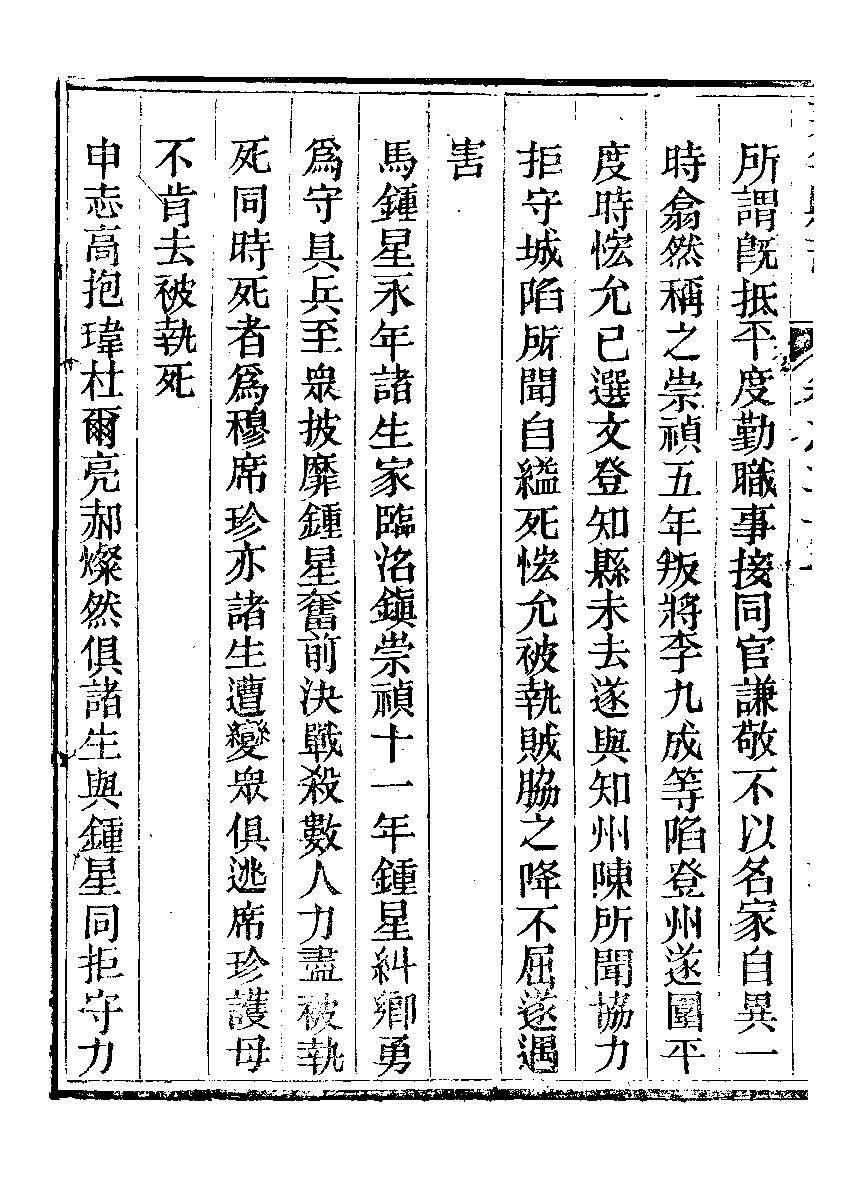 所謂旣抵平度勤職事接同官謙敬不以名家自異一
時翕然稱之崇禎五年叛將李九成等陷登州遂圍平
度時恡允已選文登知縣未去遂與知州陳所聞協力
拒守城陷所聞自縊死恡允被執賊脇之降不屈遂遇
害
馬鍾星永年諸生家臨洺鎭崇禎十一年鍾星糾鄕勇
爲守具兵至衆披靡鍾星奮前決戰殺數人力盡被執
死同時死者爲穆席珍亦諸生遭變衆俱逃席珍護母
不肯去被執死
申志高抱瑋杜爾亮郝燦然俱諸生與鍾星同拒守力